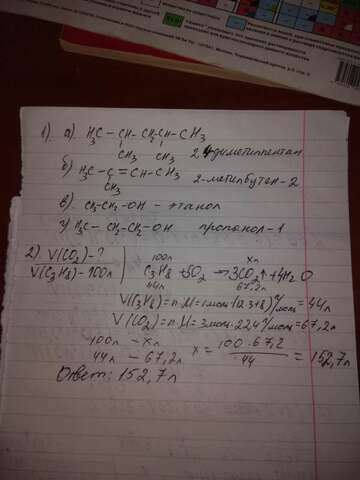 1). а) H₃C – CH – CH₂CH – CH₃
CH₃ CH₃ 2,4диметилпентан
б) H₃C – C = CH – CH₃
CH₃ 2-метилбутен-2
в) CH₃-CH₂-OH – этанол
г) H₃C – CH₂-CH₂-OH пропанол-1
2). V(CO₂) - ? 100л xл
V(C₃H₈) - 100л C₃H₈ + 5O₂ → 3CO₂↑ + 4H₂O
44л 67,2л
V(C₃H₈) = n·M = 1моль·(12·3+8)г/моль = 44л
V(CO₂) = n·M = 3моль·22,4л/моль = 67,2л
100л – xл
44л – 67,2л x = 100·67,2 / 44 = 152,7л
Ответ: 152,7л